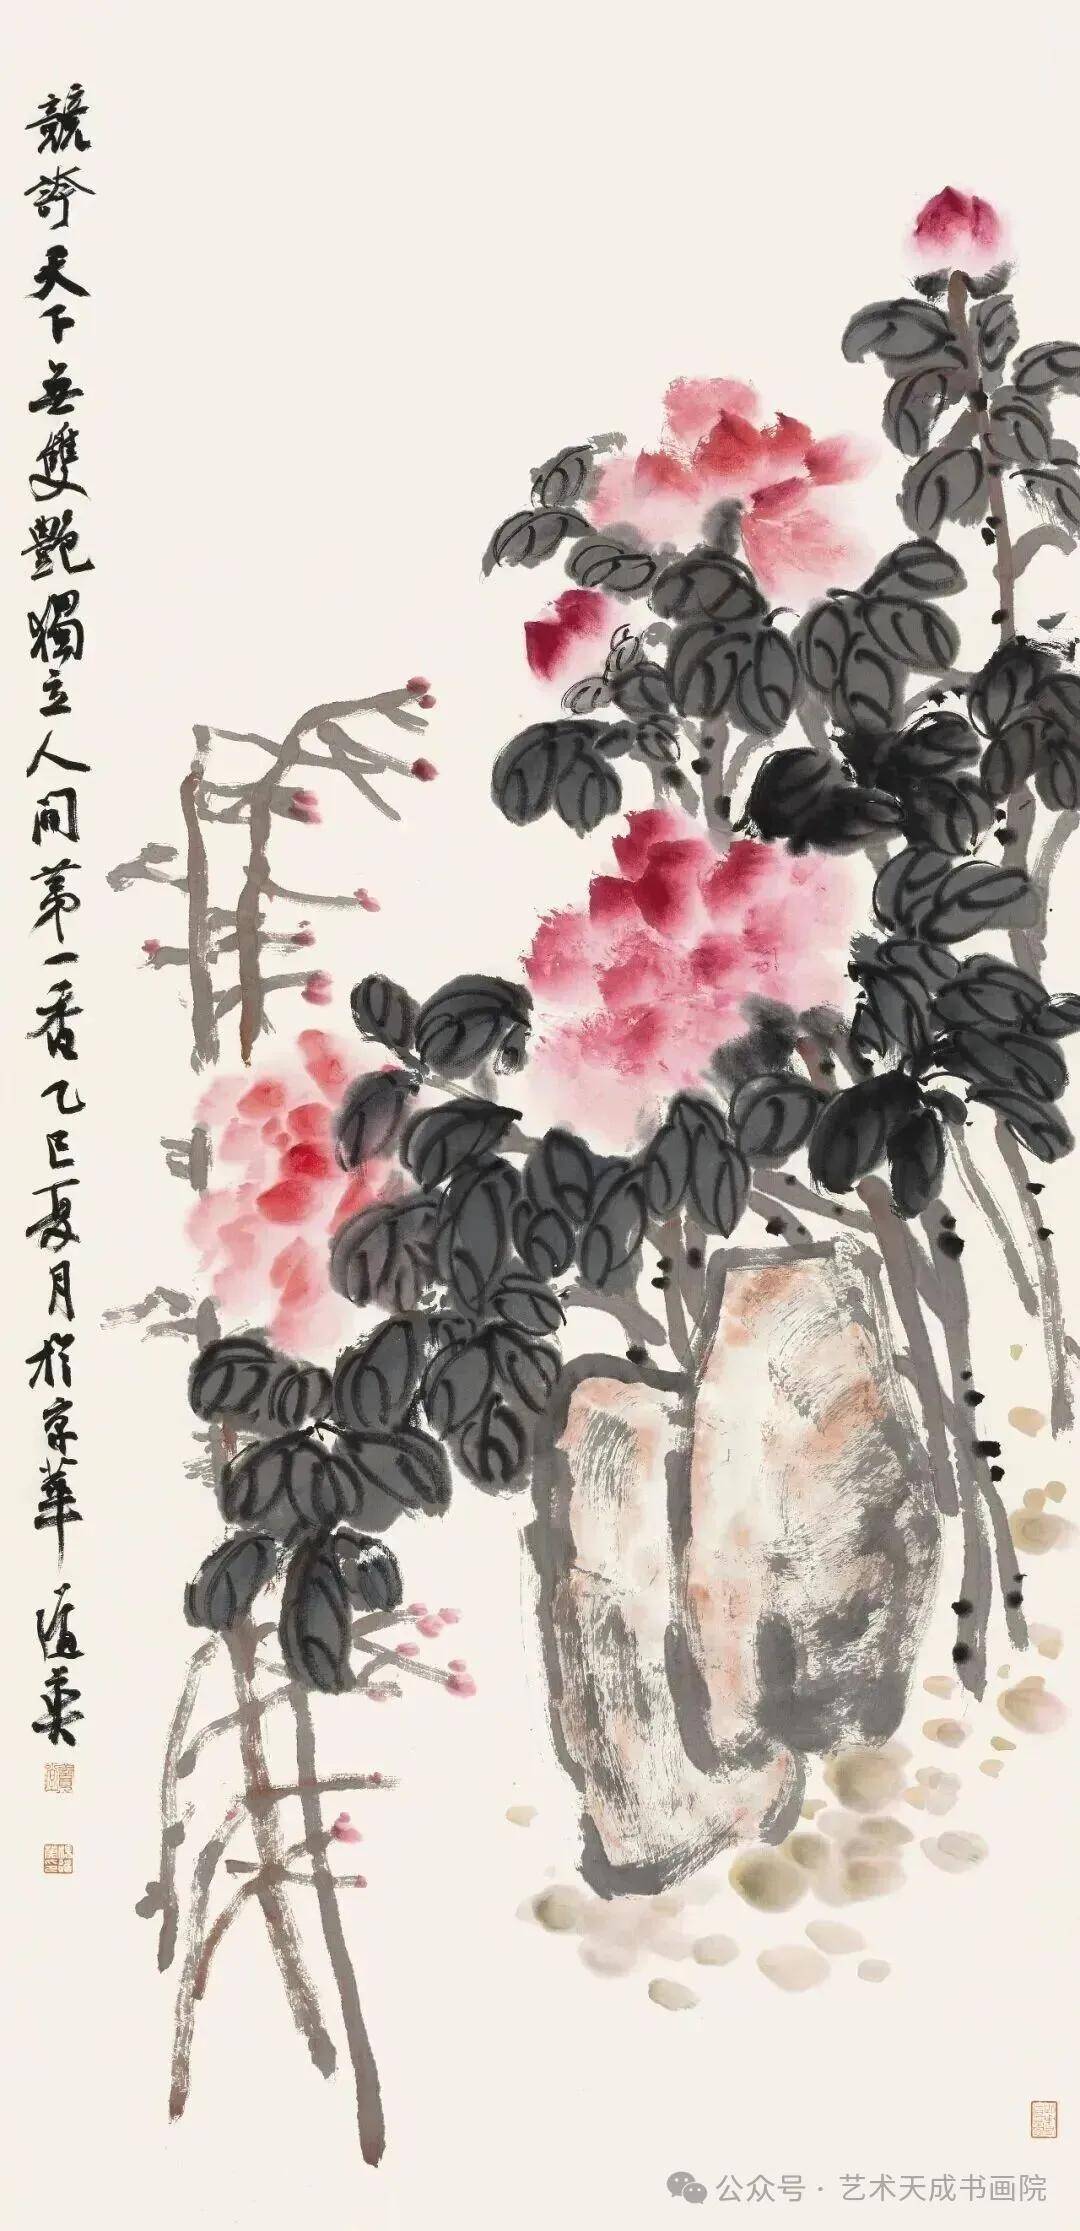 競誇天下無雙艷獨立人間第一香乙巳夏月於京華
公众号·艺术天成书画院